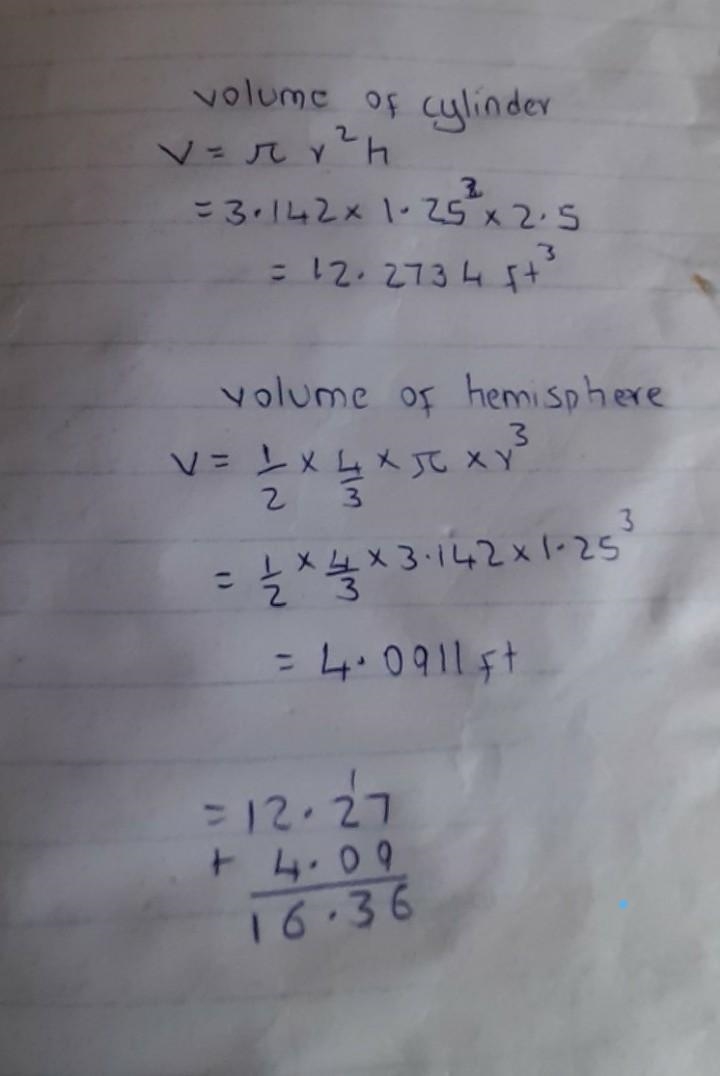 volume of cylinder
V = π r²h
= 3.142 × 1.25² × 2.5
= 12.2734 ft³
volume of hemisphere
V = 1/2 × 4/3 × π × r³
= 1/2 × 4/3 × 3.142 × 1.25³
= 4.0911 ft
1
= 12.27
+ 4.09
16.36